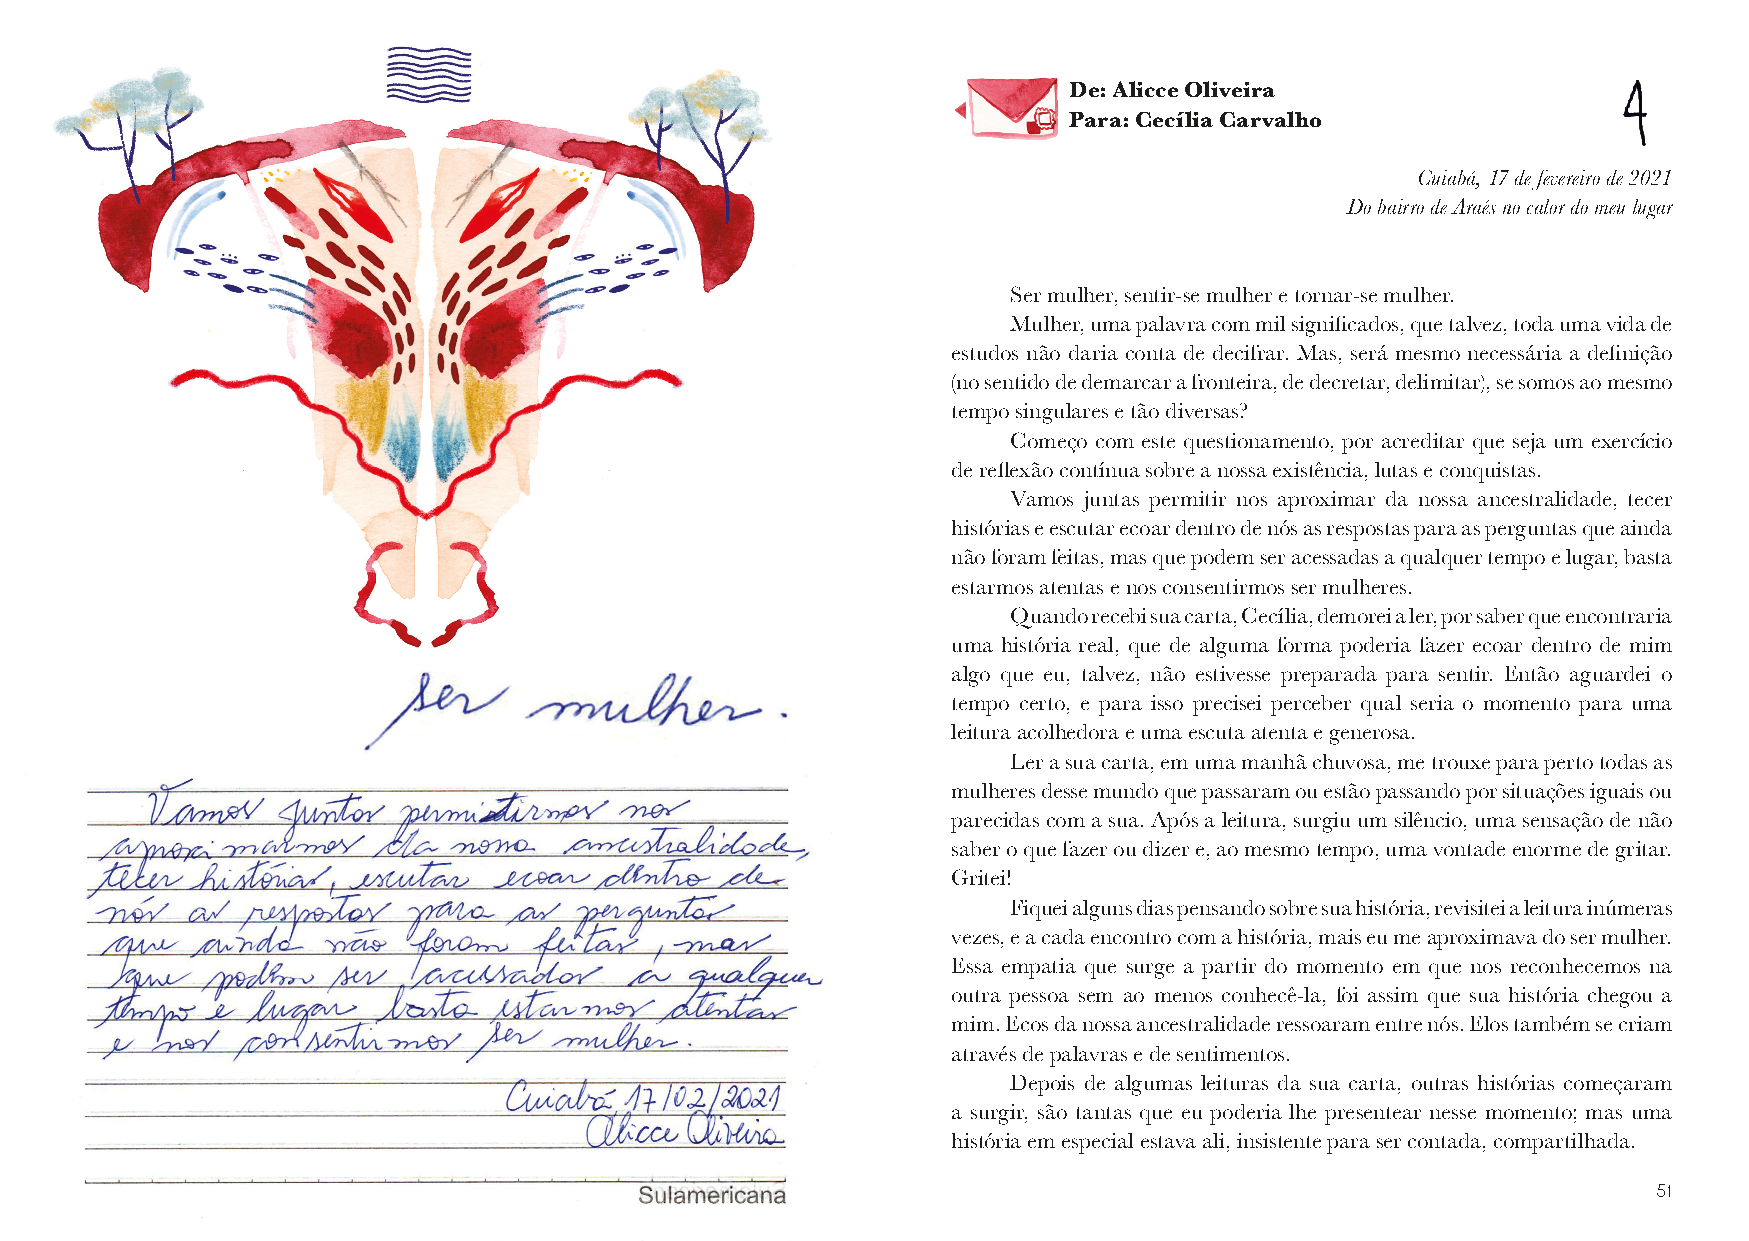 ser mulher.
Vamos juntas permitirmos nos
aproximarmos da nossa ancestralidade,
tecer histórias, escutar ecoar dentro de
nós as respostas para as perguntas
que ainda não foram feitas, mas
que podem ser acessadas a qualquer
tempo e lugar basta estarmos atentas
e nos consentirmos ser mulher.
Cuiabá, 17/02/2021
Alicce Oliveira
Sulamericana
De: Alicce Oliveira
Para: Cecília Carvalho
4
Cuiabá, 17 de fevereiro de 2021
Do bairro de Araés no calor do meu lugar
Ser mulher, sentir-se mulher e tornar-se mulher.
Mulher, uma palavra com mil significados, que talvez, toda uma vida de
estudos não daria conta de decifrar. Mas, será mesmo necessária a definição
(no sentido de demarcar a fronteira, de decretar, delimitar), se somos ao mesmo
tempo singulares e tão diversas?
Começo com este questionamento, por acreditar que seja um exercício
de reflexão contínua sobre a nossa existência, lutas e conquistas.
Vamos juntas permitir nos aproximar da nossa ancestralidade, tecer
histórias e escutar ecoar dentro de nós as respostas para as perguntas que ainda
não foram feitas, mas que podem ser acessadas a qualquer tempo e lugar, basta
estarmos atentas e nos consentirmos ser mulheres.
Quando recebi sua carta, Cecília, demorei a ler, por saber que encontraria
uma história real, que de alguma forma poderia fazer ecoar dentro de mim
algo que eu, talvez, não estivesse preparada para sentir. Então aguardei o
tempo certo, e para isso precisei perceber qual seria o momento para uma
leitura acolhedora e uma escuta atenta e generosa.
Ler a sua carta, em uma manhã chuvosa, me trouxe para perto todas as
mulheres desse mundo que passaram ou estão passando por situações iguais ou
parecidas com a sua. Após a leitura, surgiu um silêncio, uma sensação de não
saber o que fazer ou dizer e, ao mesmo tempo, uma vontade enorme de gritar.
Gritei!
Fiquei alguns dias pensando sobre sua história, revisitei a leitura inúmeras
vezes, e a cada encontro com a história, mais eu me aproximava do ser mulher.
Essa empatia que surge a partir do momento em que nos reconhecemos na
outra pessoa sem ao menos conhecê-la, foi assim que sua história chegou a
mim. Ecos da nossa ancestralidade ressoaram entre nós. Elos também se criam
através de palavras e de sentimentos.
Depois de algumas leituras da sua carta, outras histórias começaram
a surgir, são tantas que eu poderia lhe presentear nesse momento; mas uma
história em especial estava ali, insistente para ser contada, compartilhada.
51